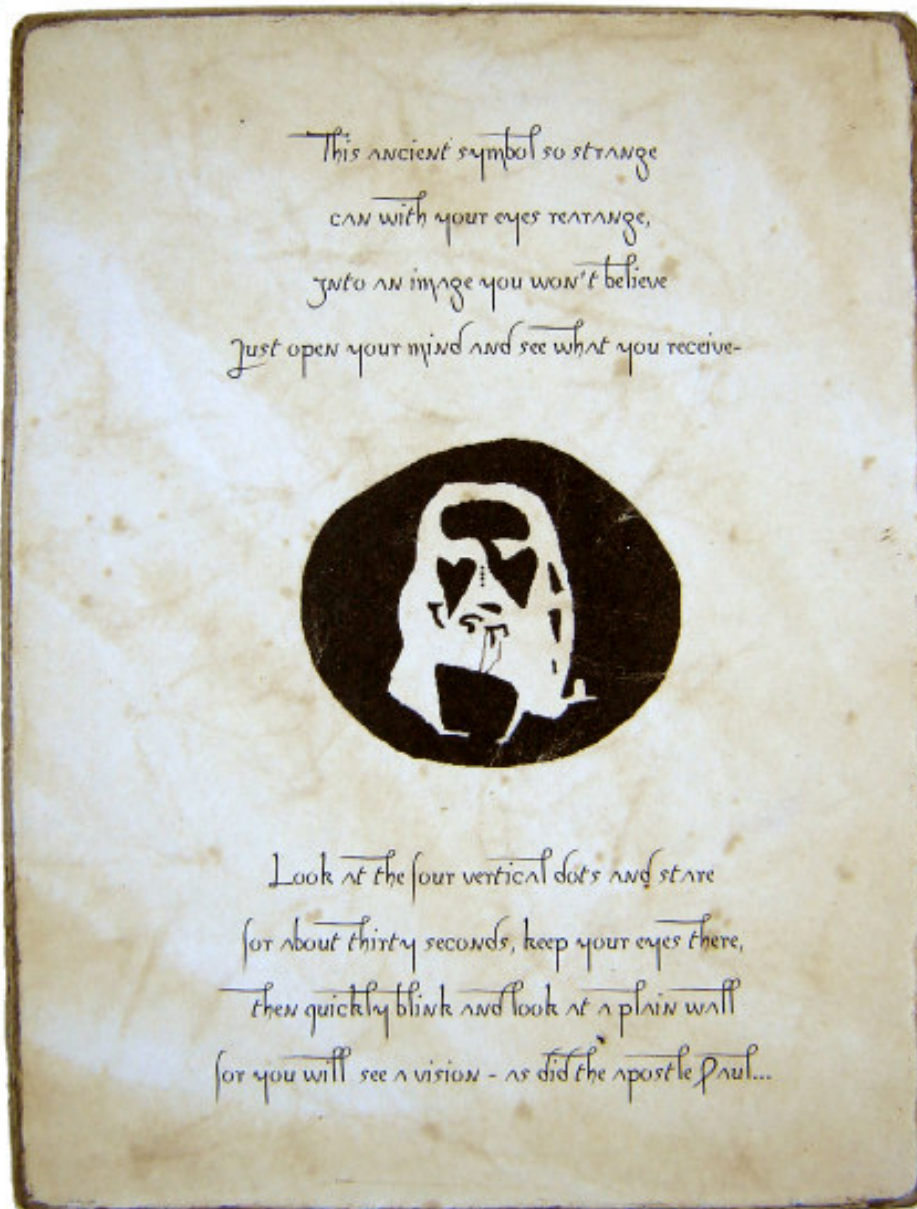 This ancient symbol so strange
can with your eyes rearange,
Into an image you won't believe
Just open your mind and see what you receive-
Look at the four vertical dots and stare
for about thirty seconds, keep your eyes there,
then quickly blink and look at a plain wall
for you will see a vision - as did the apostle Paul...